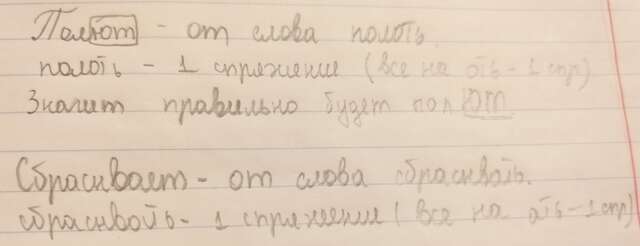 Полют - от слова полоть.
полоть - 1 спряжение (все на оть - 1 спр)
Значит правильно будет полют
Сбрасивает - от слова сбрасивать.
сбрасивать - 1 спряжение (все на ать - 1 спр)